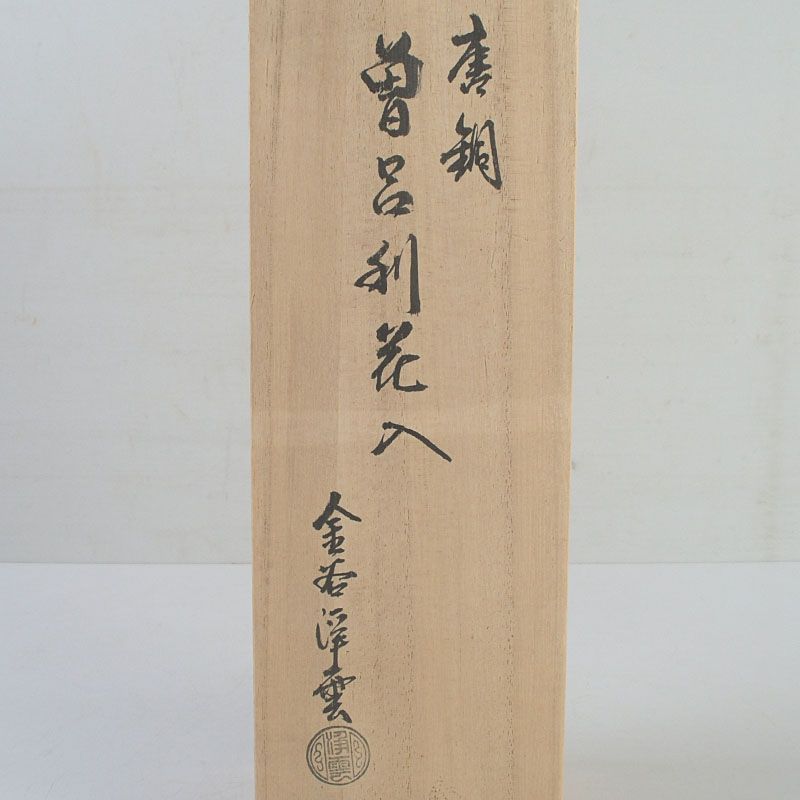 唐銅
曽呂利花入
金谷浄雲
浄雲